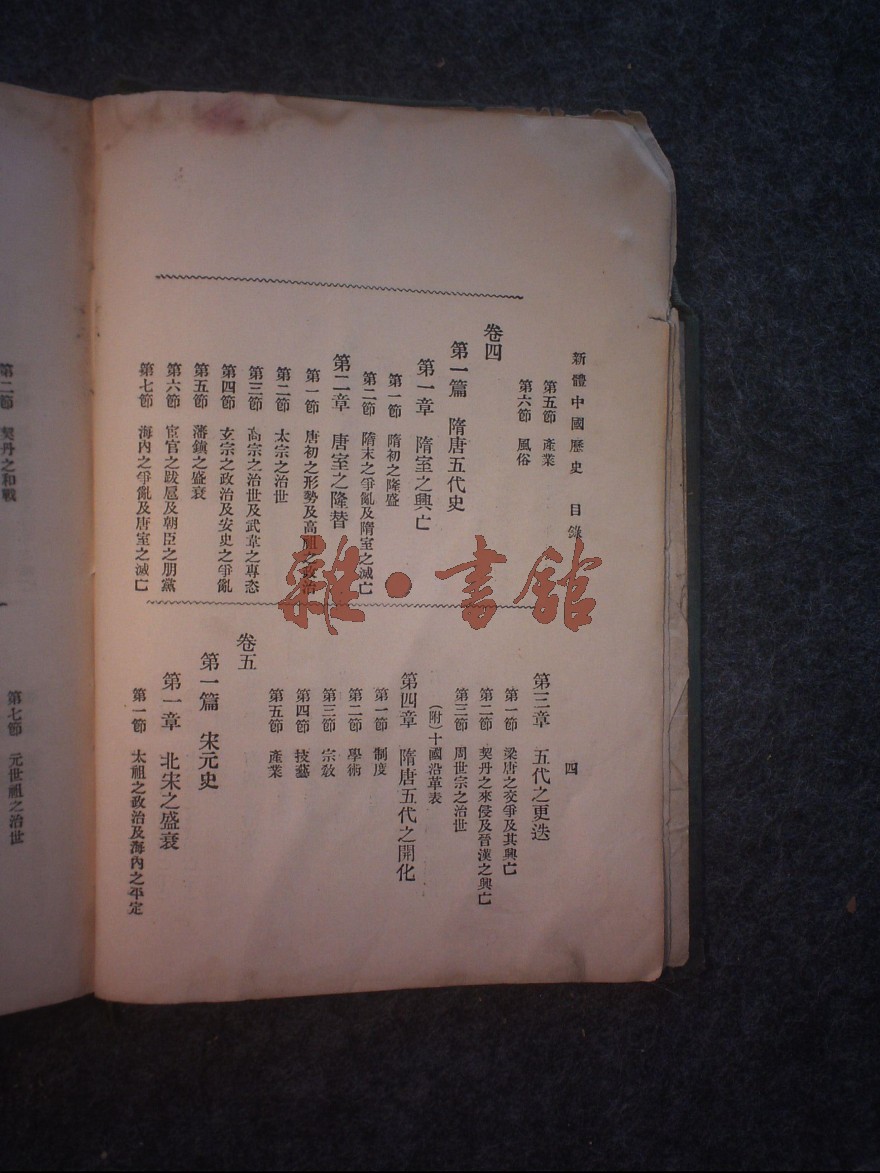 新體中國歷史 目錄
四
第五節 產業
第六節 風俗
卷四
第一篇 隋唐五代史
第一章 隋室之興亡
第一節 隋初之隆盛
第二節 隋末之爭亂及隋室之滅亡
第二章 唐室之隆替
第一節 唐初之形勢及高祖之政治
第二節 太宗之治世
第三節 高宗之治世及武韋之專恣
第四節 玄宗之政治及安史之爭亂
第五節 藩鎮之盛衰
第六節 宦官之跋扈及朝臣之朋黨
第七節 海內之爭亂及唐室之滅亡
第三章 五代之更迭
第一節 梁唐之交爭及其興亡
第二節 契丹之來侵及晉漢之興亡
第三節 周世宗之治世
(附)十國沿革表
第四章 隋唐五代之開化
第一節 制度
第二節 學術
第三節 宗教
第四節 技藝
第五節 產業
卷五
第一篇 宋元史
第一章 北宋之盛衰
第一節 太祖之政治及海內之平定
第二節 契丹之和戰
第七節 元世祖之治世
雜·書館